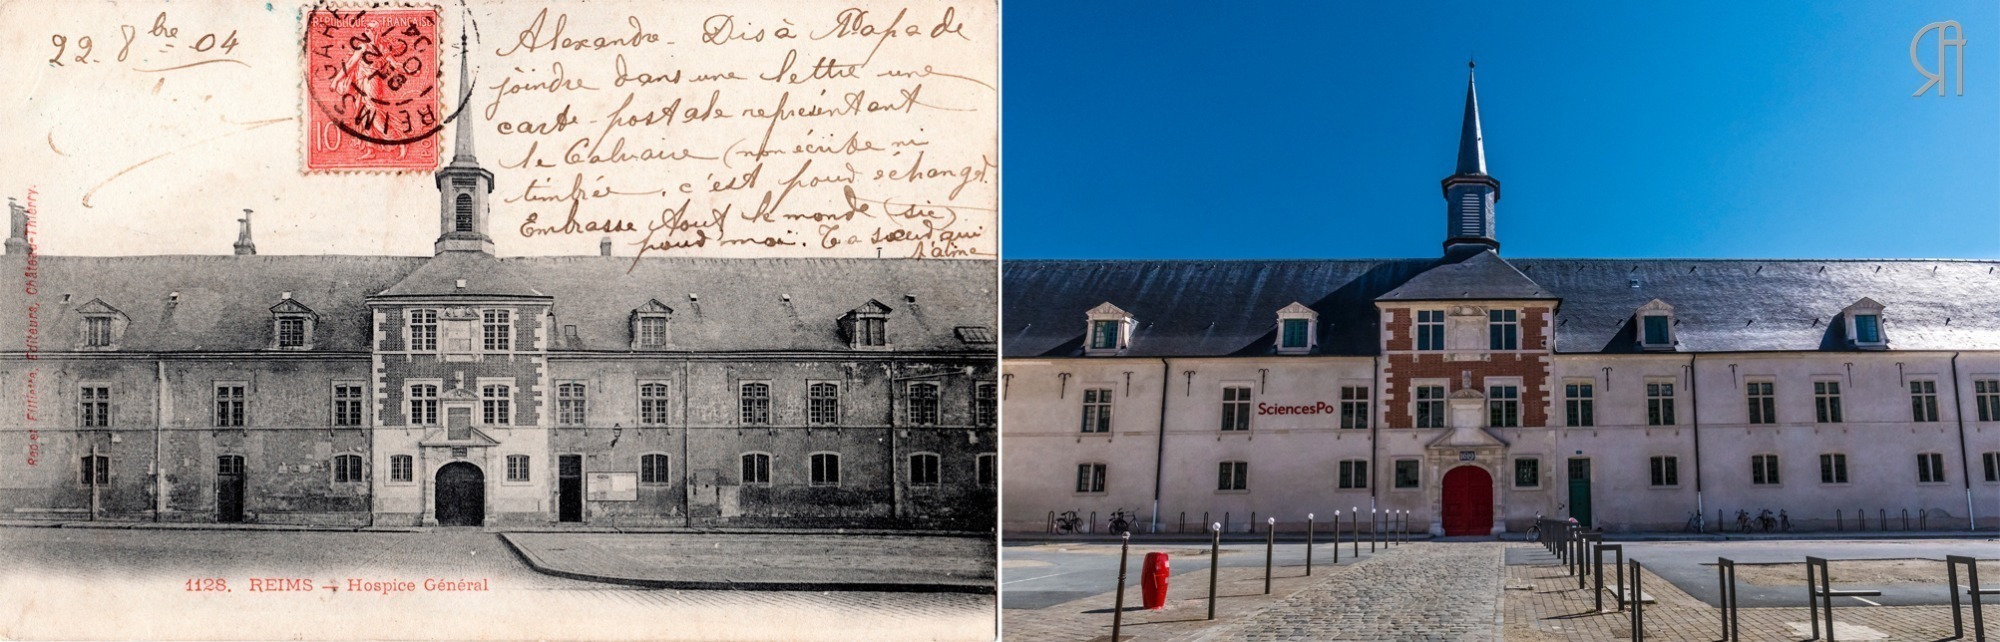 22. 8bre 04
REPUBLIQUE FRANÇAISE
REIMS
22
OCT
04
10
Alexandre - Dis à Papa de
joindre dans une lettre une
carte-postale représentant
le Calvaire (non écrite ni
timbrée, c'est pour échanger.
Embrasse tout le monde (sic)
pour moi. Ta soeur qui
t'aime
Éditeurs, Château-Thierry.
1128. REIMS — Hospice Général
SciencesPo